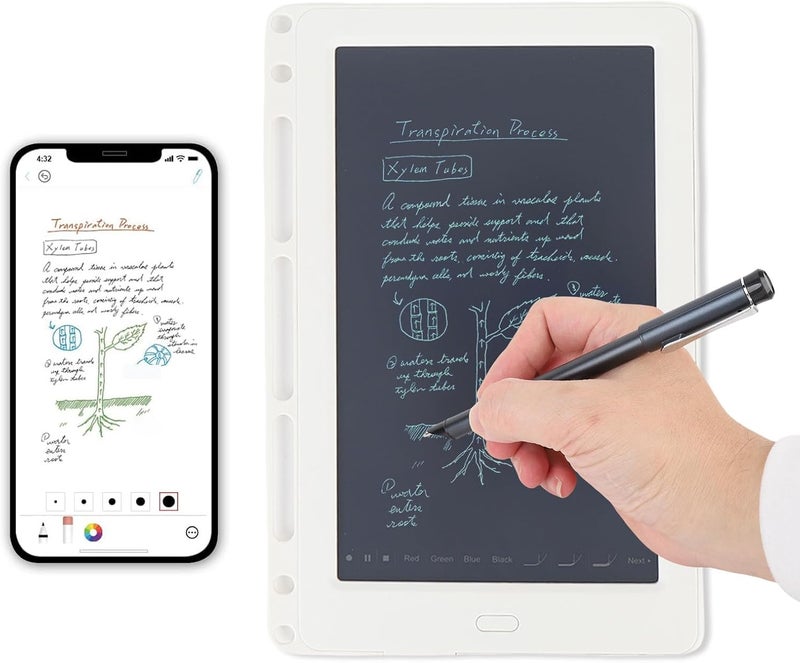 4:32
Transpiration Process
Xylem Tubes
A compound tissue in vascular plants
that helps provide support and that
conducts water and nutrients up
from the roots, consisting of tracheids,
parenchyma and woody fibers.
③ water
evaporate
through
stomata in
leaves
② water travels
up through
xylem tubes
① water
enters
roots
Transpiration Process
Xylem Tubes
A compound tissue in vascular plants
that helps provide support and that
conducts water and nutrients up
from the roots, consisting of tracheids,
parenchyma and woody fibers.
③ water
② water travels
up through
xylem tubes
① water
enters
roots
Red Green Blue Black Next